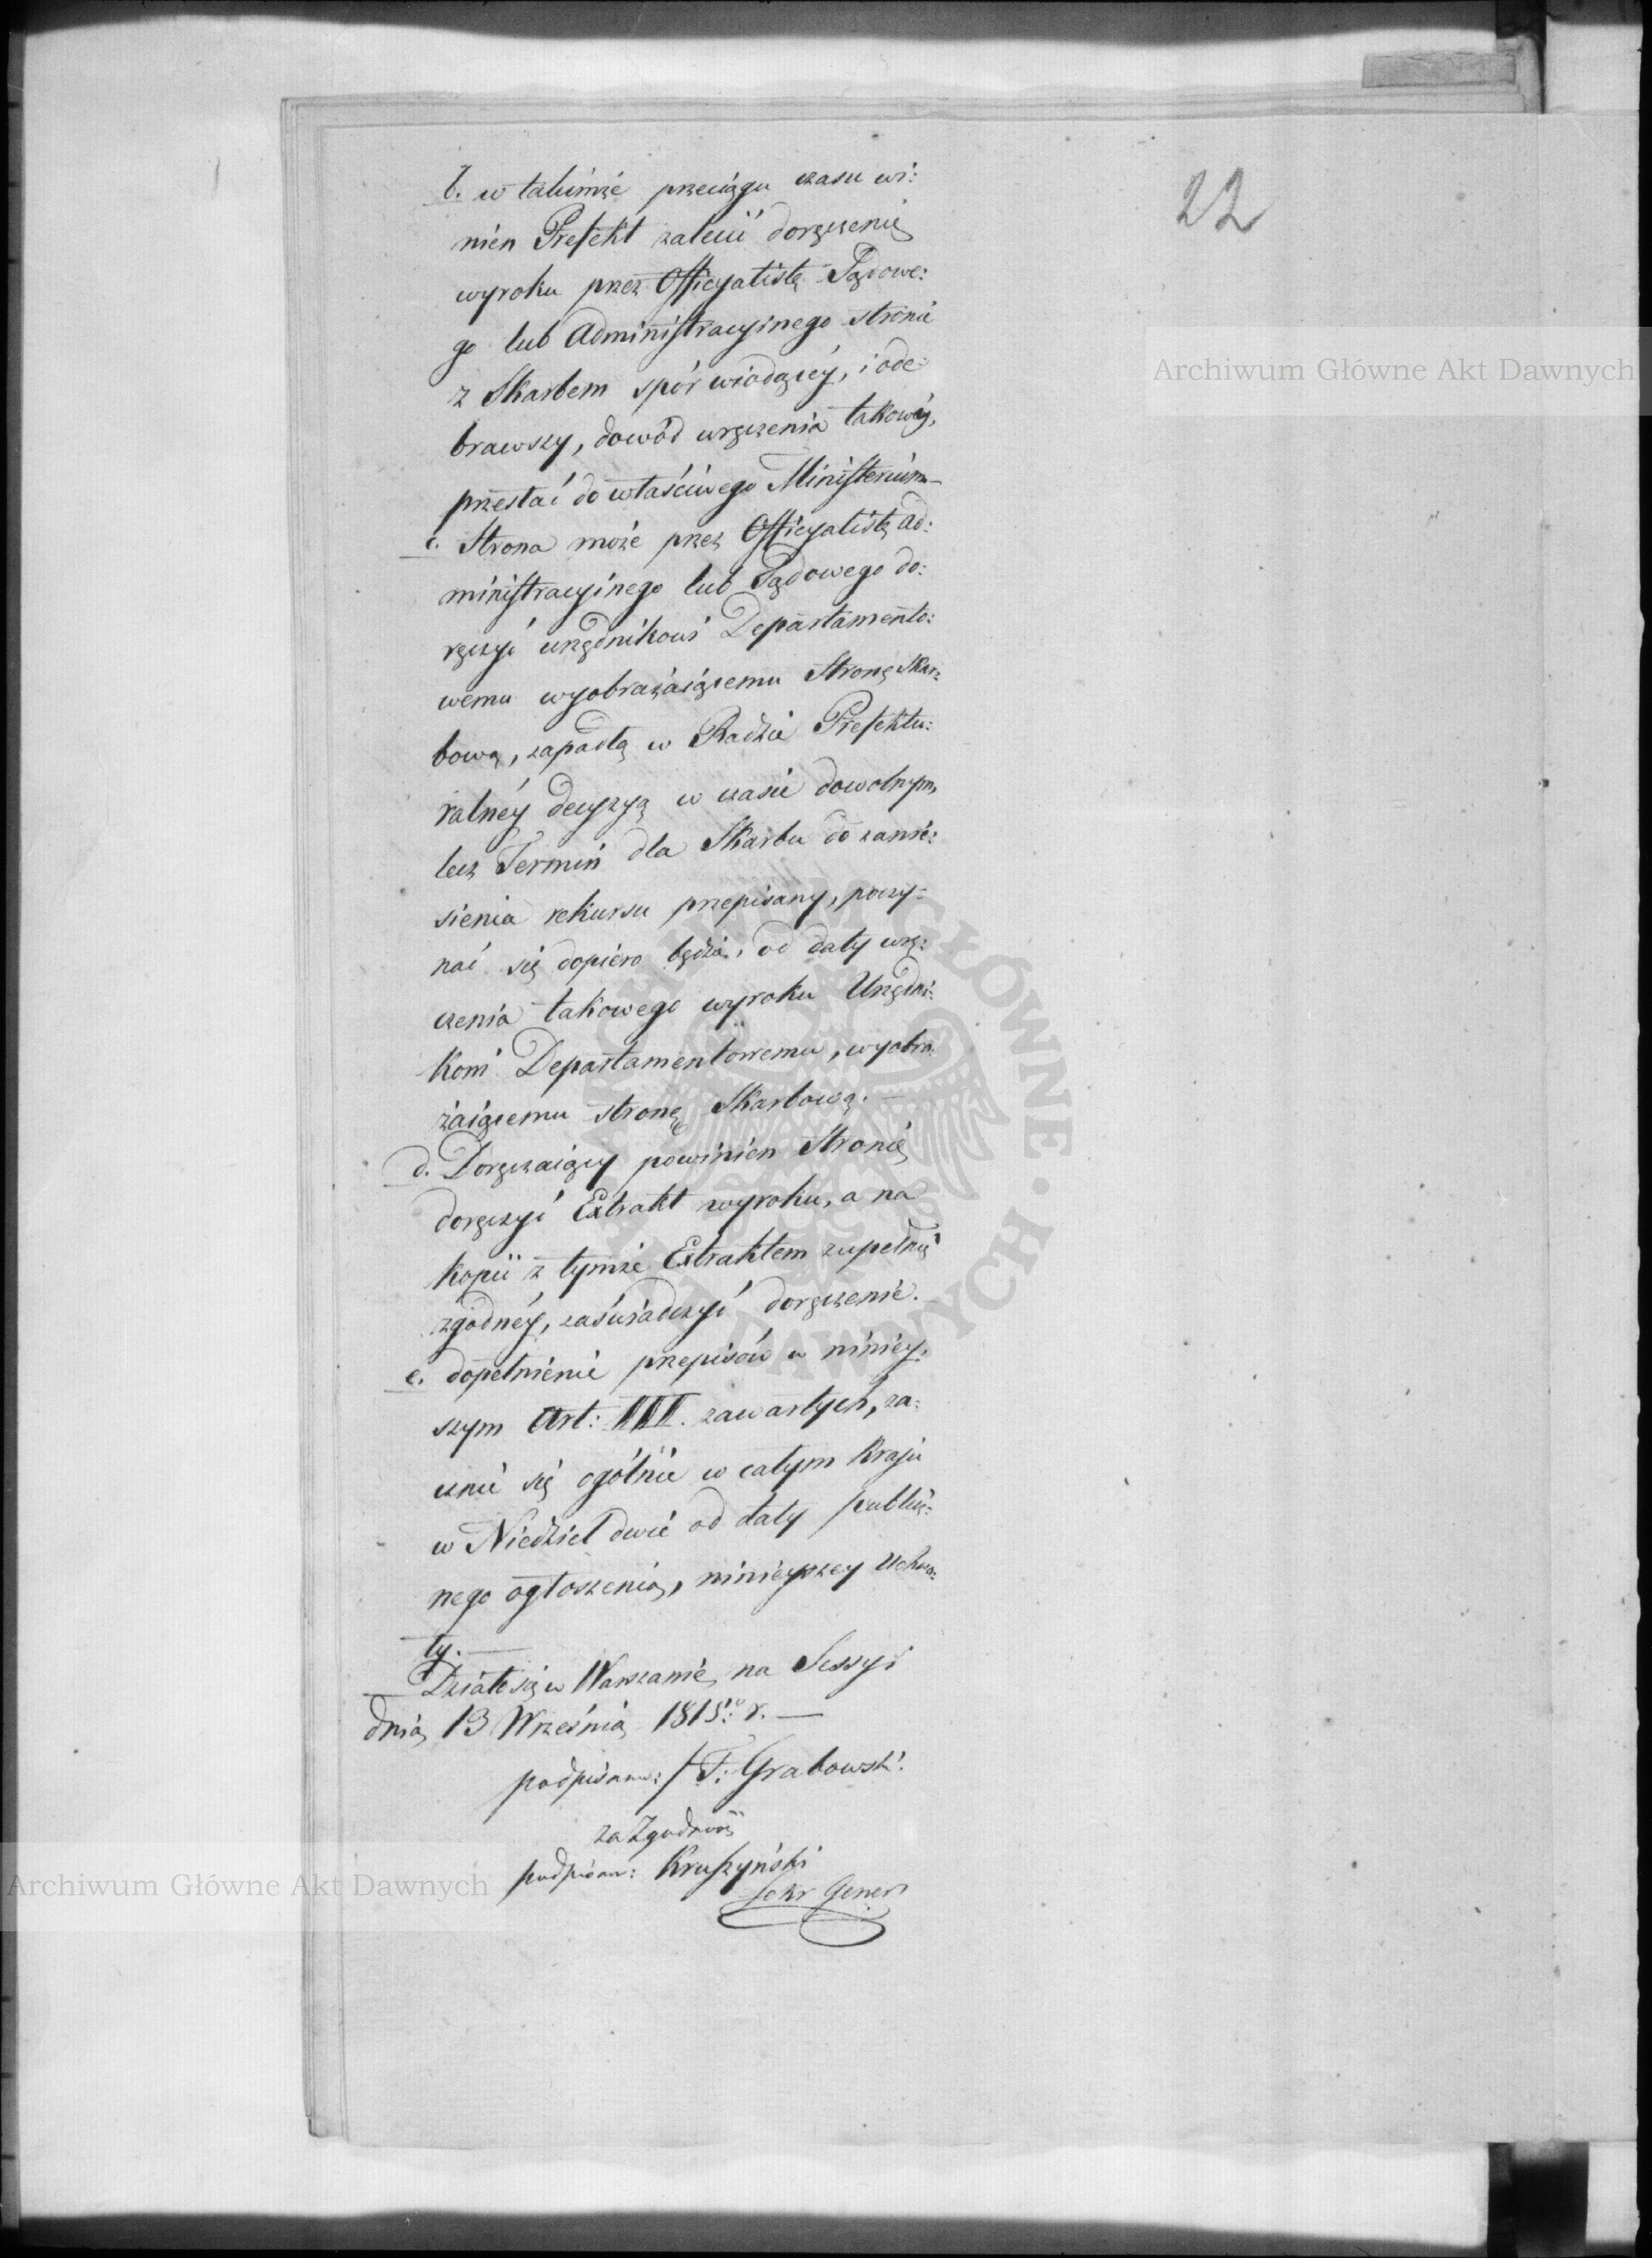 22
b. w takimże przeciągu czasu wi:
nien Prefekt zalecić doręczenie
wyroku przez Officyalistę Sądowe:
go lub Administracyinego stronie
z Skarbem spór wiodącéy, i ode:
brawszy, dowód wręczenia takowéy,
przesłać do właściwego Ministerium —
c. Strona może przez Officyalistę Ad:
ministracyinego lub Sądowego do:
ręczyć urzędnikowi Departamento:
wemu wyobrażaiącemu Stronę Skar:
bową, zapadłą w Radzie Prefektu:
ralnéy decyzyą w czasie dowolnym,
lecz Termin dla Skarbu do zanie:
sienia rekursu przepisany, poczy:
nać się dopiero będzie, od daty wrę:
czenia takowego wyroku Urzędni:
kowi Departamentowemu, wyobra:
żaiącemu stronę Skarbową. —
d. Doręczaiący powinien Stronie
doręczyć Extrakt wyroku, a na
kopii z tymże Extraktem zupełnie
zgodnéy, zaświadczyć doręczenie. —
e. dopełnienie przepisów w niniey:
szym Art: III. zawartych, za:
cznie się ogólnie w całym Kraju
w Niedziel dwie od daty publicz:
nego ogłoszenia, ninieyszey Uchwa:
ły. —
Działo się w Warszawie na Sessyi
dnia 13 Września 1815.º r. —
podpisano: / T: Grabowski.
za Zgodność
podpisan: Kruszyński
Sekr Gener
Archiwum Główne Akt Dawnych
Archiwum Główne Akt Dawnych
ARCHIWUM GŁÓWNE AKT DAWNYCH